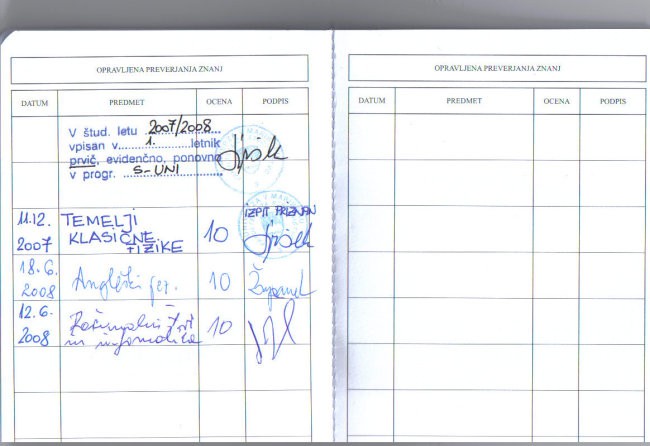 OPRAVLJENA PREVERJANJA ZNANJ
DATUM PREDMET OCENA PODPIS
V štud. letu 2007/2008
vpisan v 1. letnik
prvič, evidenčno, ponovno
v progr. S-UNI
11.12. 2007 TEMELJI KLASIČNE FIZIKE 10 IZPIT PRIZNAN
18.6. 2008 Angleški jez. 10 Županek
12.6. 2008 in informatika 10
OPRAVLJENA PREVERJANJA ZNANJ
DATUM PREDMET OCENA PODPIS